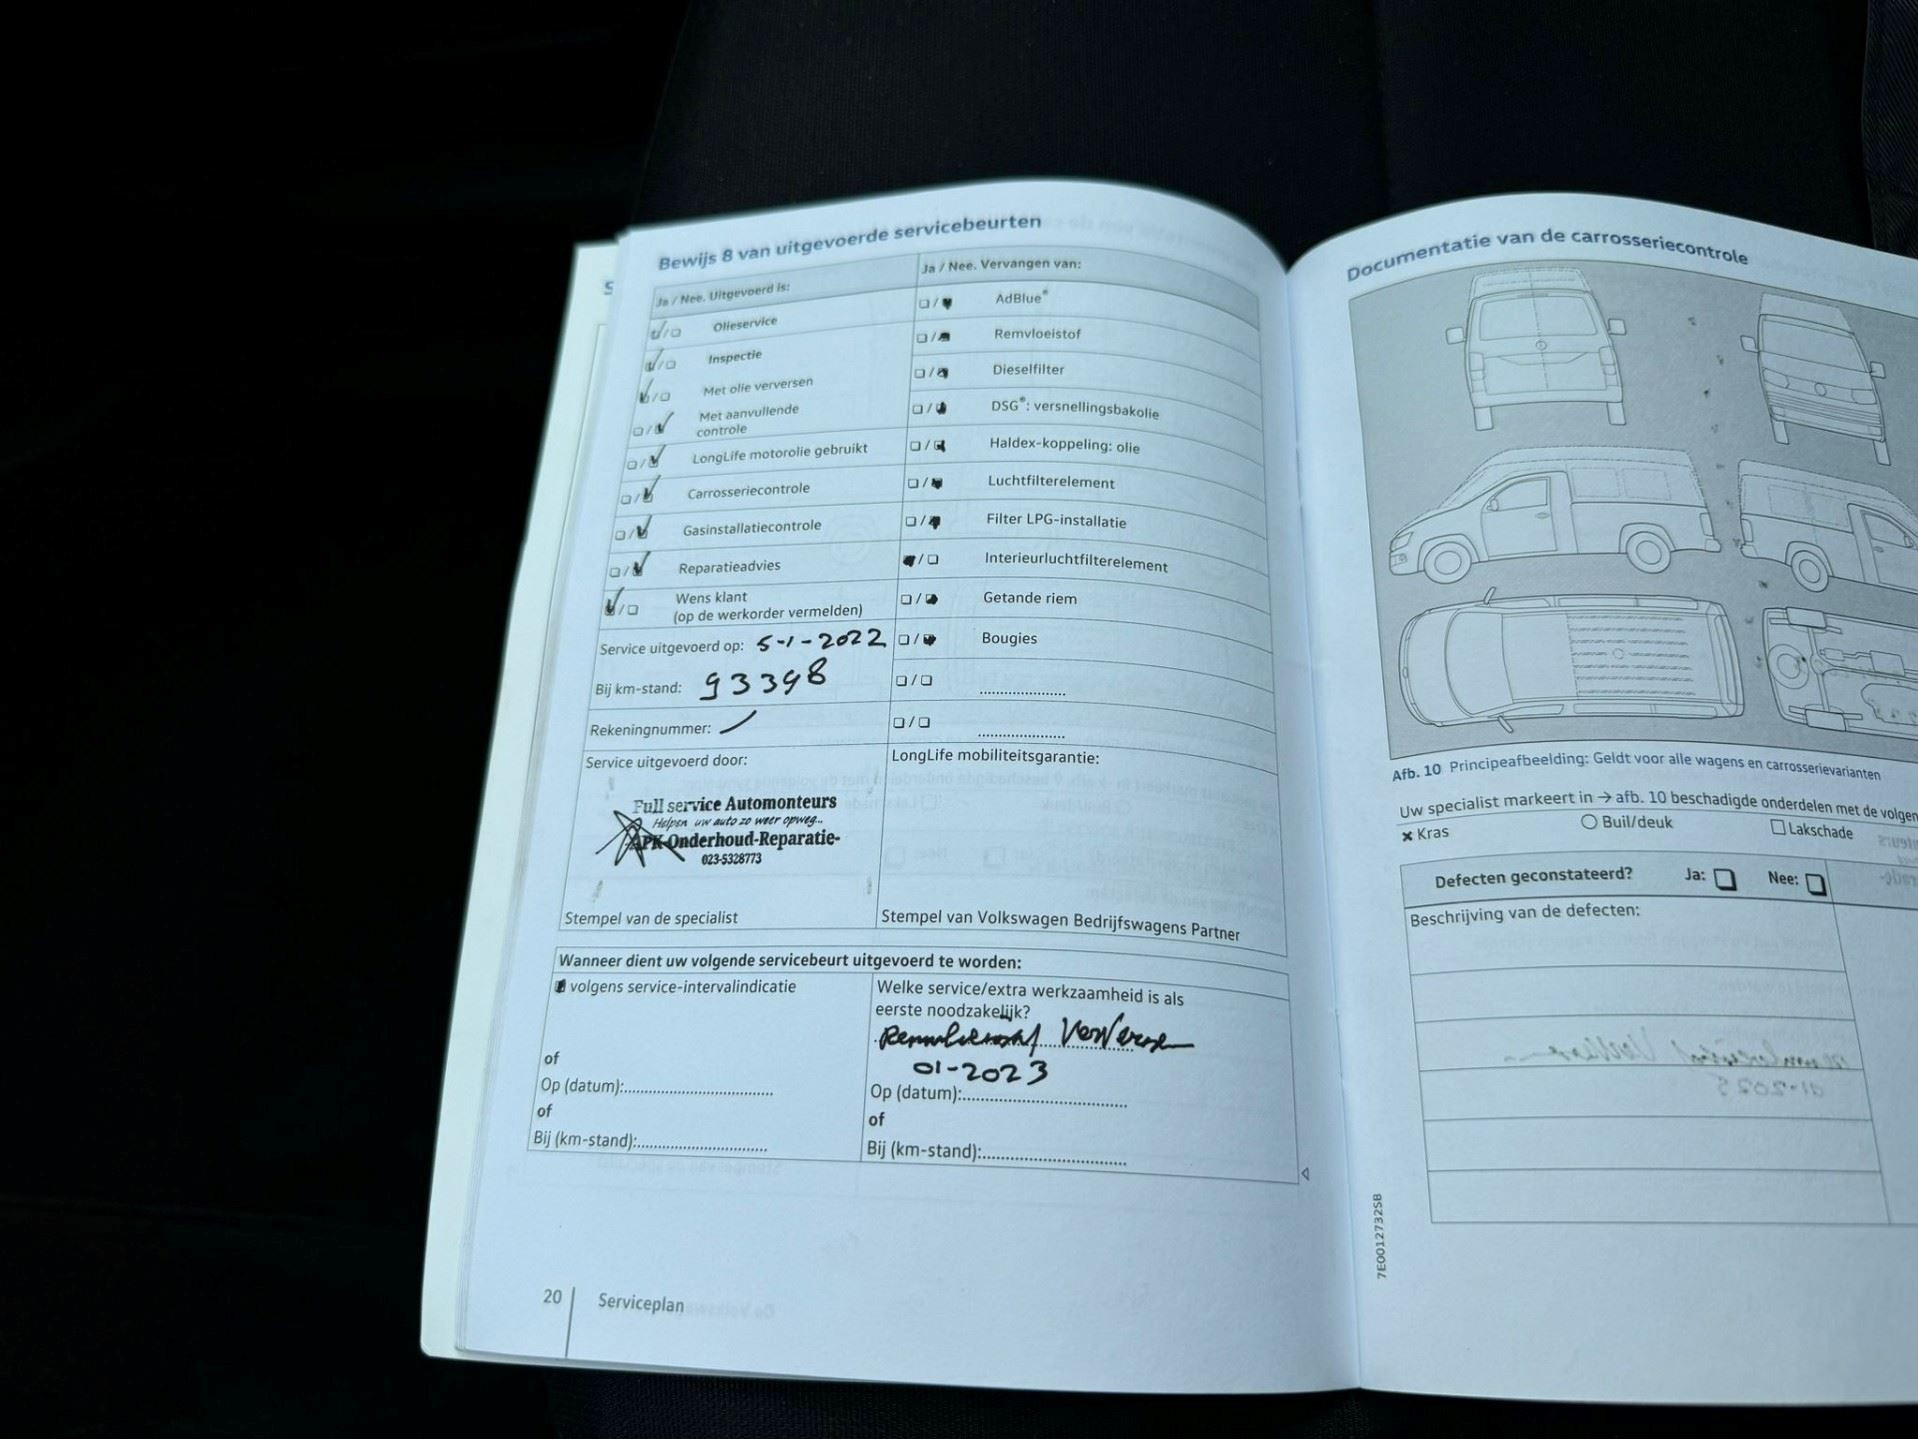 Bewijs 8 van uitgevoerde servicebeurten
Ja / Nee. Uitgevoerd is:
Olieservice
Inspectie
Met olie verversen
Met aanvullende
controle
LongLife motorolie gebruikt
Carrosseriecontrole
Gasinstallatiecontrole
Reparatieadvies
Wens klant
(op de werkorder vermelden)
Service uitgevoerd op: 5-1-2022
Bij km-stand: 93398
Rekeningnummer:
Service uitgevoerd door:
Full service Automonteurs
Helpen uw auto zo weer opweg...
APK-Onderhoud-Reparatie-
023-5328773
Stempel van de specialist
Ja / Nee. Vervangen van:
AdBlue®
Remvloeistof
Dieselfilter
DSG®: versnellingsbakolie
Haldex-koppeling: olie
Luchtfilterelement
Filter LPG-installatie
Interieurluchtfilterelement
Getande riem
Bougies
LongLife mobiliteitsgarantie:
Stempel van Volkswagen Bedrijfswagens Partner
Wanneer dient uw volgende servicebeurt uitgevoerd te worden:
volgens service-intervalindicatie
of
Op (datum):
of
Bij (km-stand):
Welke service/extra werkzaamheid is als
eerste noodzakelijk?
Remvloeistof Verversen
01-2023
Op (datum):
of
Bij (km-stand):
20 Serviceplan
Documentatie van de carrosseriecontrole
Afb. 10 Principeafbeelding: Geldt voor alle wagens en carrosserievarianten
Uw specialist markeert in → afb. 10 beschadigde onderdelen met de volgen
× Kras ○ Buil/deuk □ Lakschade
Defecten geconstateerd? Ja: Nee:
Beschrijving van de defecten:
7E0012732SB